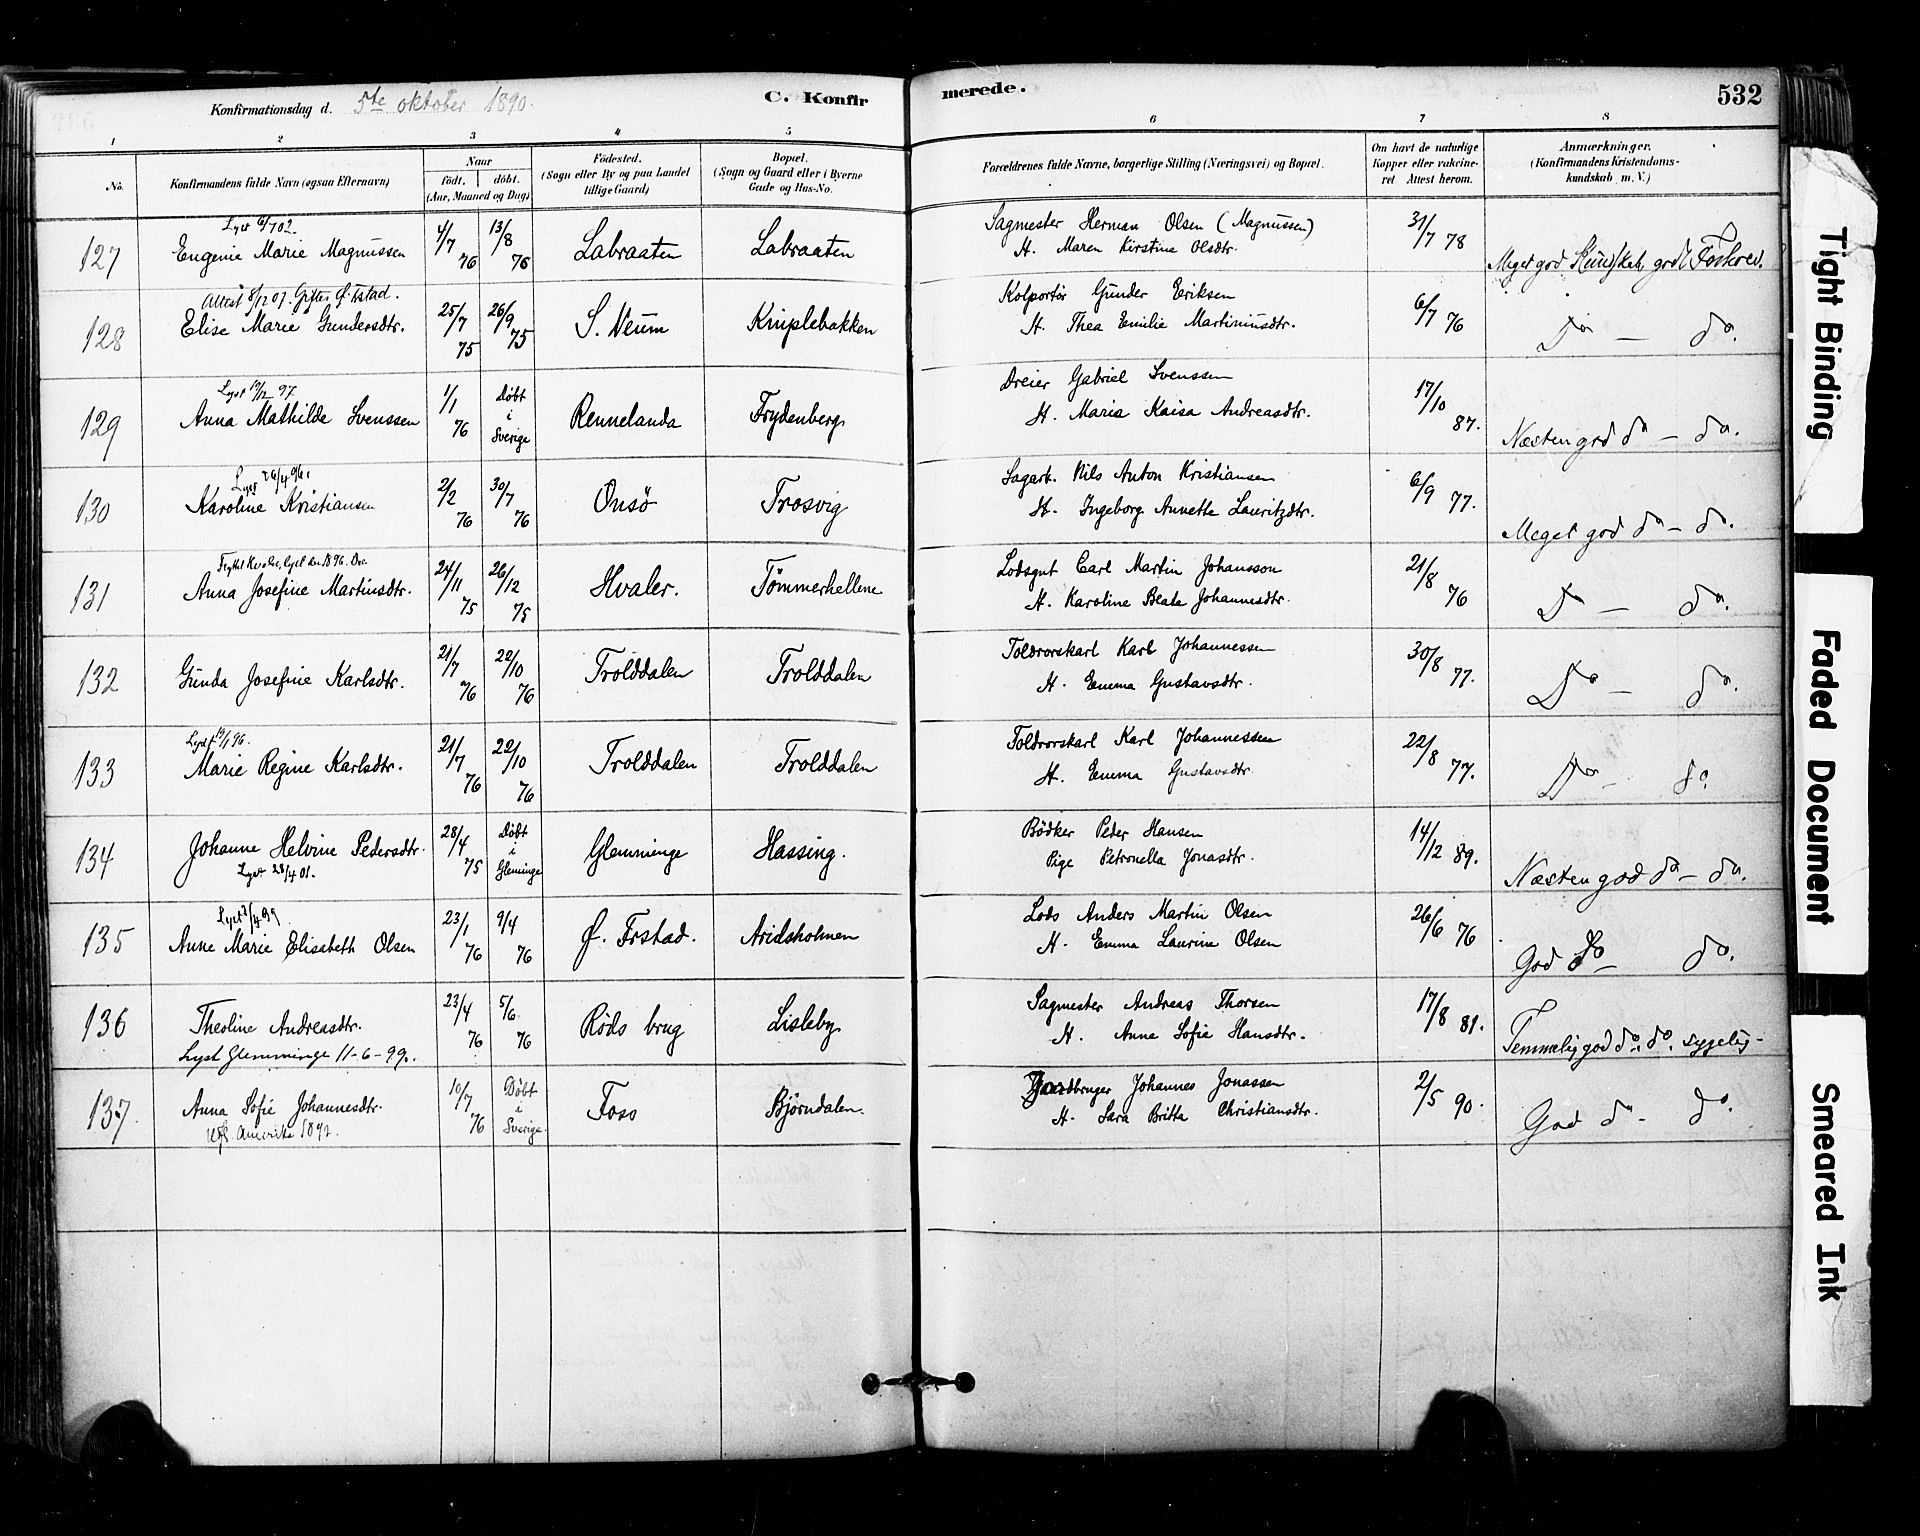 Konfirmationsdag d. 5te oktober 1890.
C. Konfirmerede.
532
1 2 3 4 5 6 7 8
No.
Konfirmandens fulde Navn (ogsaa Efternavn)
Naar født. døbt. (Aar, Maaned og Dag)
Fødested. (Sogn eller By og paa Landet tillige Gaard)
Bopæl. (Sogn og Gaard eller i Byerne Gade og Hus-No.
Forældrenes fulde Navne, borgerlige Stilling (Næringsvei) og Bopæl.
Om havt de naturlige Kopper eller vakcineret Attest herom.
Anmærkninger. (Konfirmandens Kristendomskundskab m. V.)
Lyst 6/7 02.
127 Eugenie Marie Magnussen 4/7 76 13/8 76 Labraaten Labraaten Sagmester Herman Olsen (Magnussen) 31/7 78
H. Maren Kirstine Olsdtr. Meget god Kundskab, godt Forhold.
Attest 8/12 07. Giftes Ø. Fstad.
128 Elise Marie Gundersdtr. 25/7 75 26/9 75 S. Veum Kniplebakken Kolportør Gunder Eriksen 6/7 76
H. Thea Emilie Martiniusdtr. Do — do.
Lyst 19/12 97.
129 Anna Mathilde Svenssen 1/1 76 Døbt i Sverige Rennelanda Frydenberg Dreier Gabriel Svenssen 17/10 87.
H. Maria Kaisa Andreasdtr. Næsten god do — do.
Lyst 26/4 96.
130 Karoline Kristiansen 2/2 76 30/7 76 Onsö Trosvig Sagarb. Nils Anton Kristiansen 6/9 77.
H. Ingeborg Annette Lauritzdtr. Meget god do — do.
131 Anna Josefine Martinsdtr. 24/11 75 26/12 75 Hvaler. Tömmerhellene Lodsgut Carl Martin Johansson 21/8 76
H. Karoline Beate Johannesdtr. Do — do.
132 Gunda Josefine Karlsdtr. 21/7 76 22/10 76 Trolddalen Trolddalen Toldrorskarl Karl Johannessen 30/8 77.
H. Emma Gustavsdtr. Do — do.
Lyst 19/1 96.
133 Marie Regine Karlsdtr. 21/7 76 22/10 76 Trolddalen Trolddalen Toldrorskarl Karl Johannessen 22/8 77.
H. Emma Gustavsdtr. Do — do
134 Johanne Helvine Pedersdtr. 28/4 75 Döbt i Gleminge Glemminge Hassing. Bödker Peder Hansen 14/12 89.
Lyst 28/4 01. Pige Petronella Jonasdtr. Næsten god do — do.
Lyst 3/4 99
135 Anne Marie Elisabeth Olsen 23/1 76 9/4 76 Ø. Frstad. Aridsholmen Lods Anders Martin Olsen 26/6 76
H. Emma Laurine Olsen God do — do.
136 Theoline Andreasdtr. 23/4 76 5/6 76 Röds brug Lisleby Sagmester Andreas Thorsen 17/8 81.
Lyst Glemminge 11-6-99. H. Anne Sofie Hansdtr. Temmelig god do. do. sygelig
137. Anna Sofie Johannesdtr. 10/7 76 Döbt i Sverige. Foss Björndalen. Jordbruger Johannes Jonassen 2/5 90.
Utfl. Amerika 1892. H. Sara Britta Christiansdtr. God do — do.
Tight Binding
Faded Document
Smeared Ink